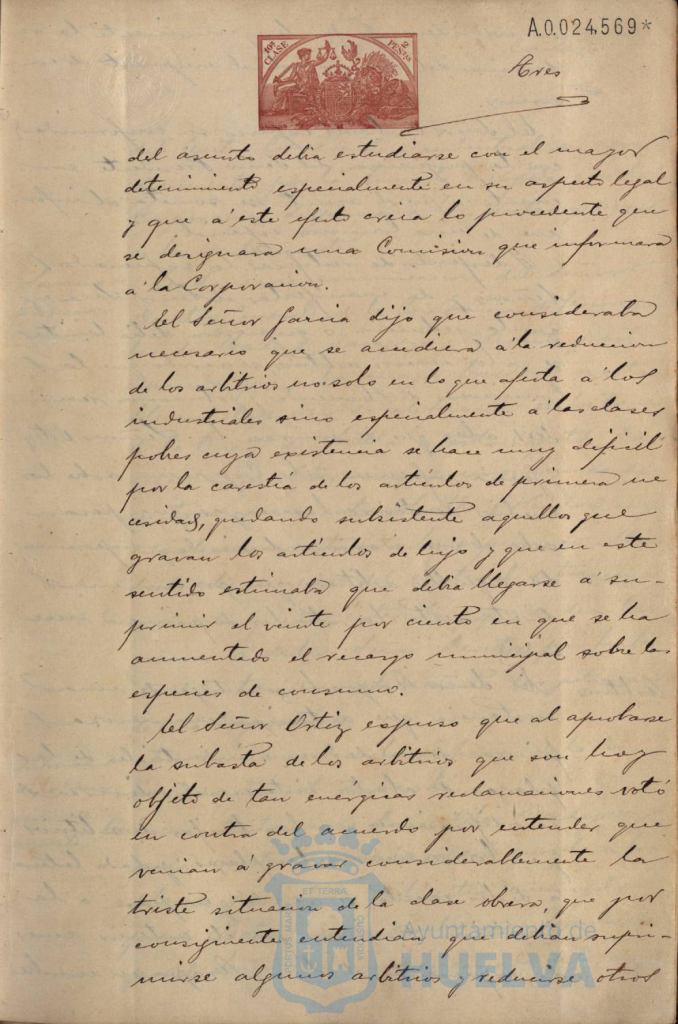 A.0.024,569*
10ª CLASE
2 PESETAS
Tres
del asunto debia estudiarse con el mayor
detenimiento especialmente en su aspecto legal
y que á este efecto creia lo procedente que
se designara una Comision que informara
á la Corporacion.
El Señor Garcia dijo que consideraba
necesario que se acudiera á la reduccion
de los arbitrios no solo en lo que afecta á los
industriales sino especialmente á las clases
pobres cuya existencia se hace muy dificil
por la carestia de los articulos de primera ne
cesidad, quedando subsistente aquellos que
gravan los articulos de lujo y que en este
sentido estimaba que debia llegarse á su-
primir el veinte por ciento en que se ha
aumentado el recargo municipal sobre las
especies de consumo.
El Señor Ortiz espuso que al aprobarse
la subasta de los arbitrios que son hoy
objeto de tan enérgicas reclamaciones votó
en contra del acuerdo por entender que
venian á gravar considerablemente la
triste situacion de la clase obrera, que por
consiguiente entendian que debian supri-
mirse algunos arbitrios y reducirse otros
ET TERRA
Ayuntamiento de
HUELVA